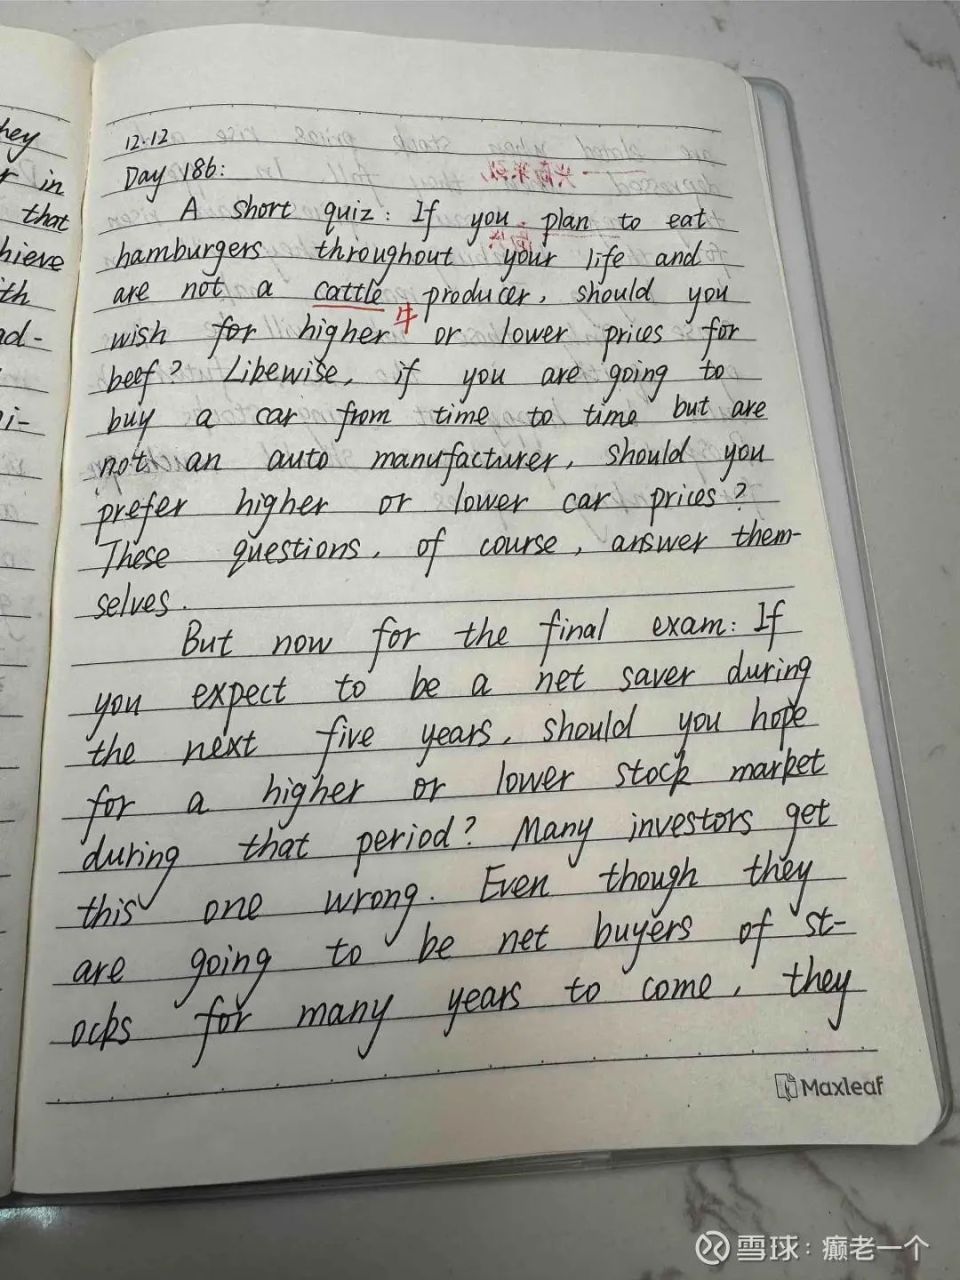 hey
r in
that
hieve
ith
ad-
i-
12.12
Day 186:
A short quiz: If you plan to eat
hamburgers throughout your life and
are not a cattle producer, should you
牛
wish for higher or lower prices for
beef? Likewise, if you are going to
buy a car from time to time but are
not an auto manufacturer, should you
prefer higher or lower car prices?
These questions, of course, answer them-
selves.
But now for the final exam: If
you expect to be a net saver during
the next five years, should you hope
for a higher or lower stock market
during that period? Many investors get
this one wrong. Even though they
are going to be net buyers of st-
ocks for many years to come, they
Maxleaf
雪球：癫老一个